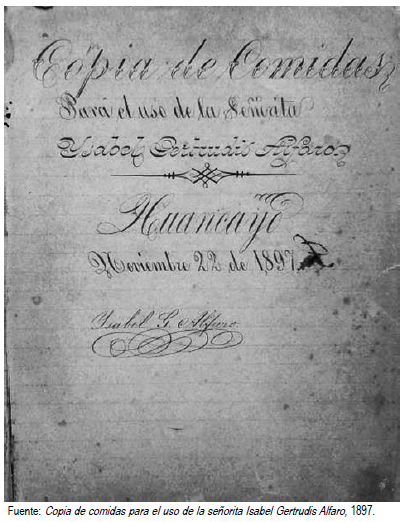 Copia de Comidas
Para el uso de la Señorita
Ysabel Gertrudis Alfaro
Huancayo
Noviembre 22 de 1897
Ysabel G. Alfaro
Fuente: Copia de comidas para el uso de la señorita Isabel Gertrudis Alfaro, 1897.